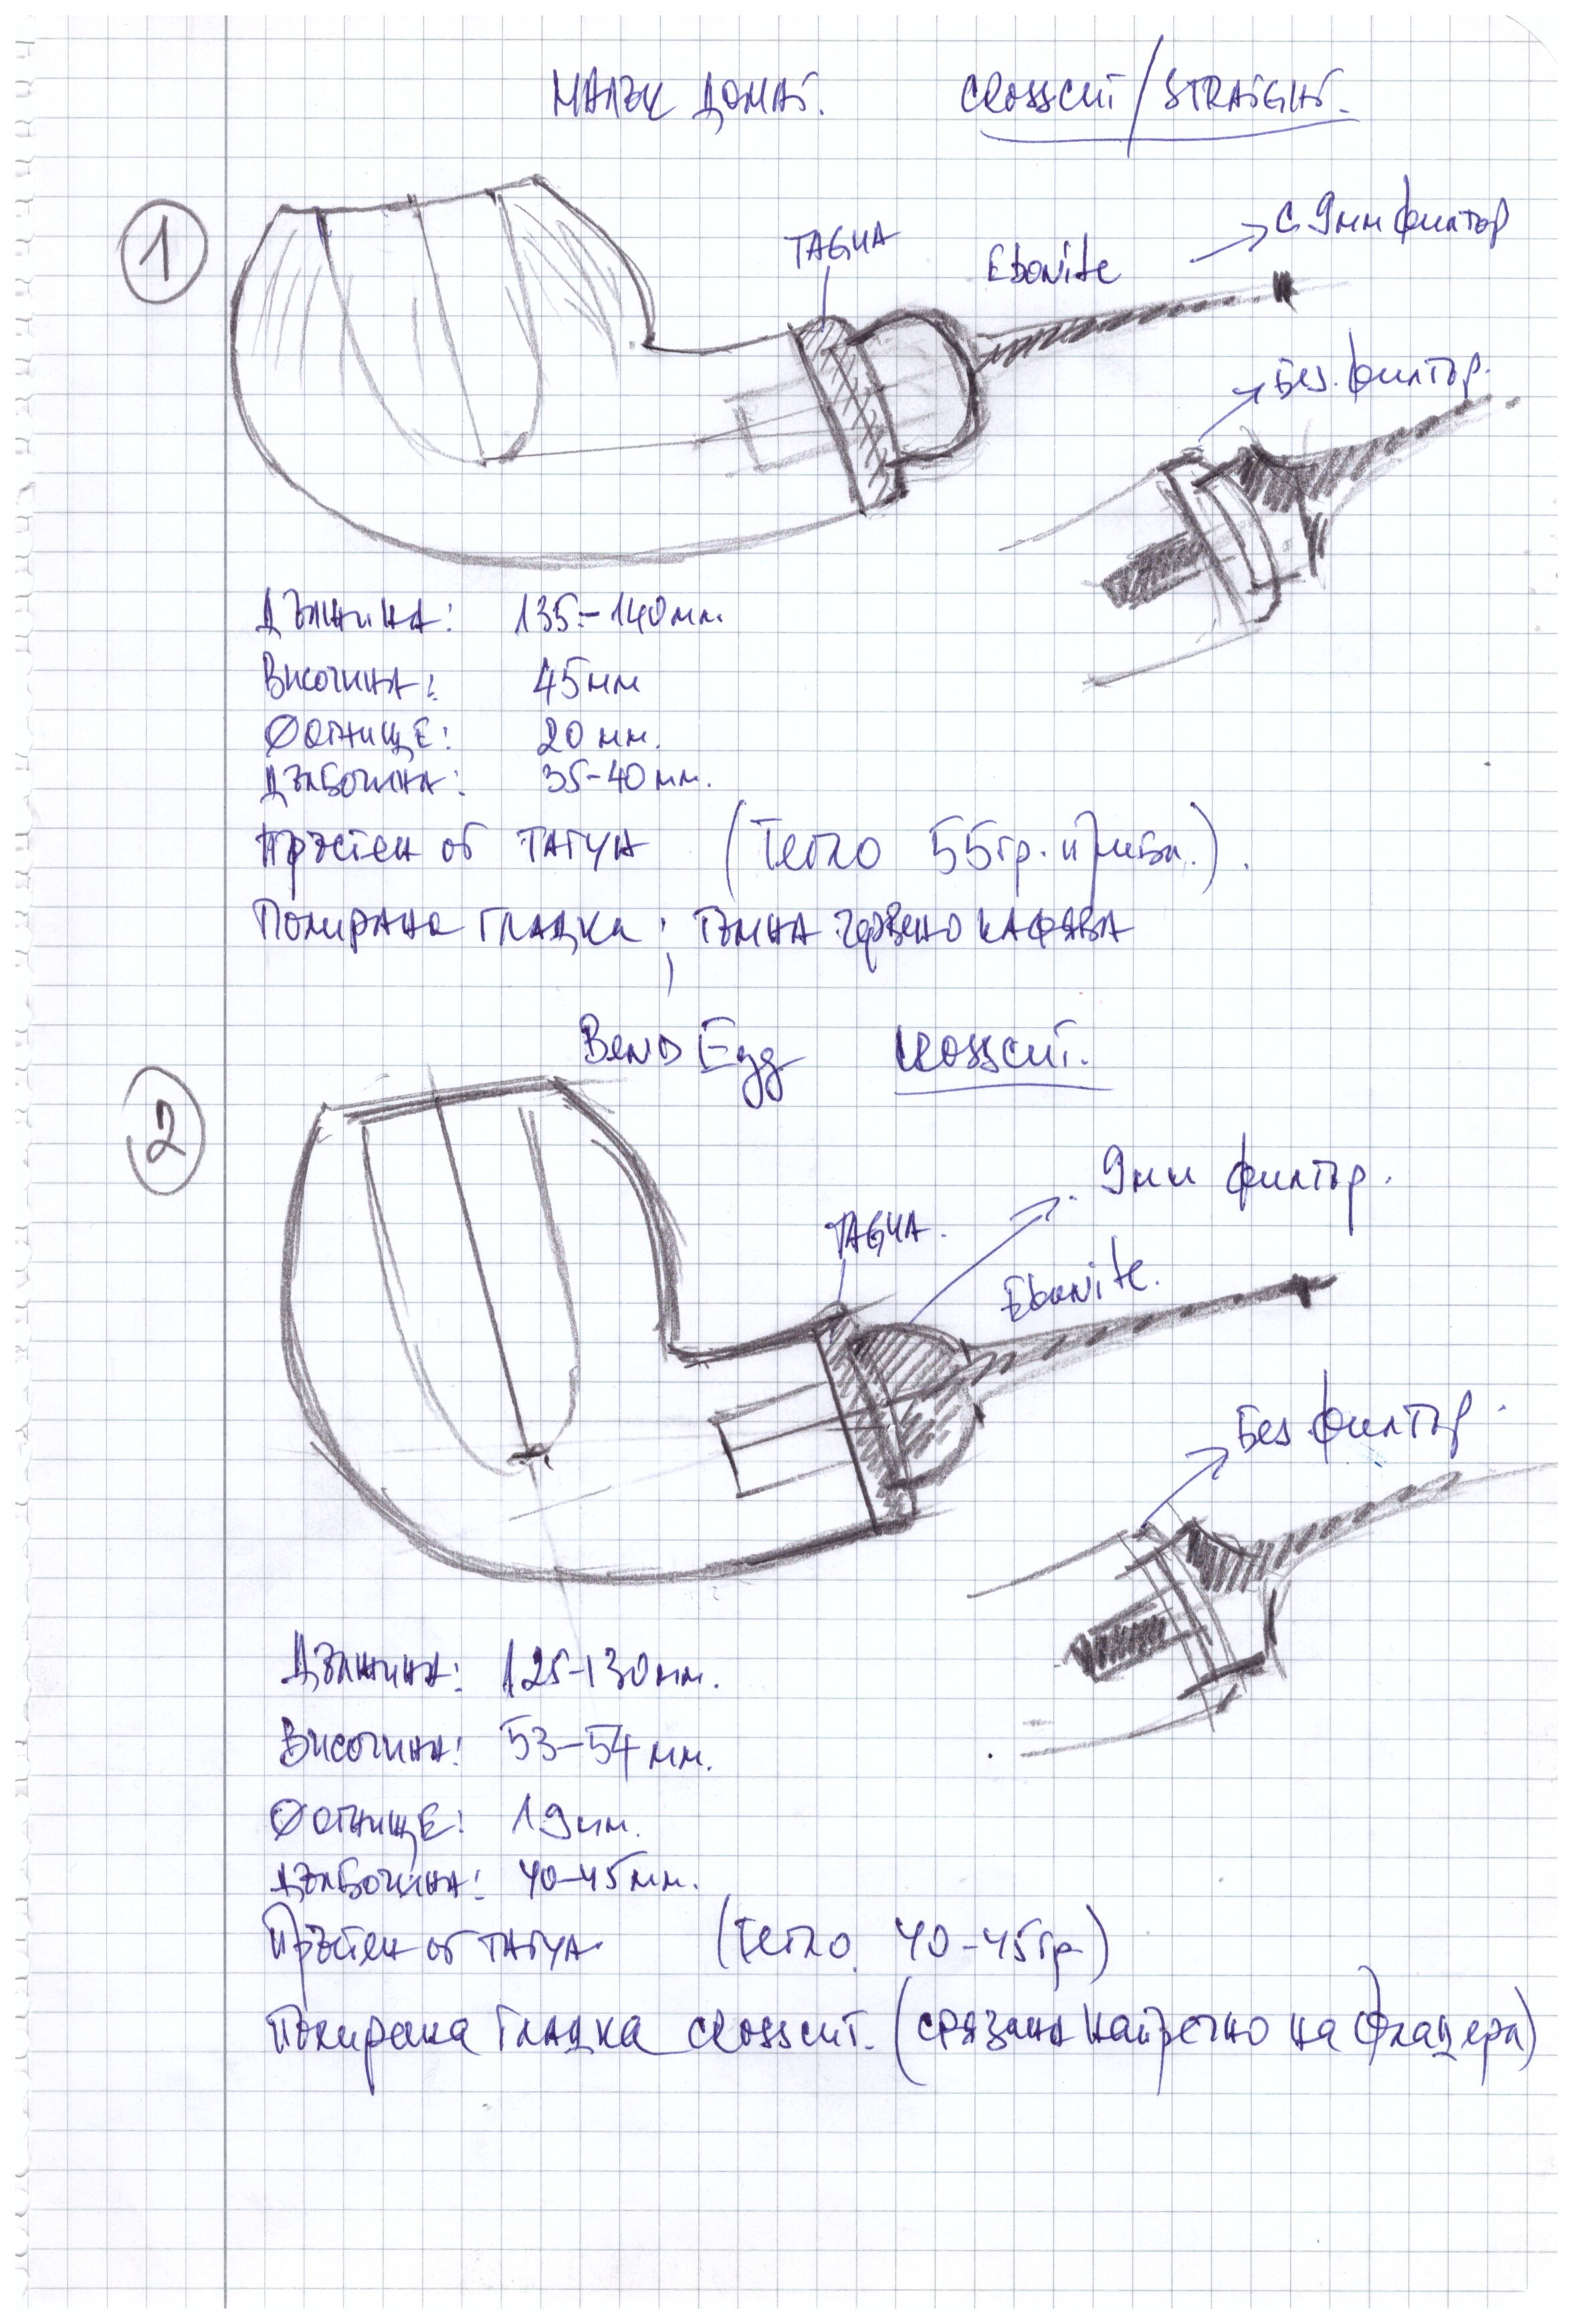 МАЛЪК ДОМАТ. CROSSCUT/STRAIGHT.
1
TAGUA
Ebonite
С 9мм филтър
Без филтър.
Дължина: 135-140мм.
Височина: 45мм
Ø Огнище: 20мм.
Дълбочина: 35-40мм.
Пръстен от ТАГУА (Тегло 55гр.
Полирана гладка; тъмна червено кафява
Bend Egg CROSSCUT.
2
9мм филтър.
TAGUA.
Ebonite.
Без филтър.
Дължина: 125-130мм.
Височина: 53-54мм.
Ø Огнище: 19мм.
Дълбочина: 40-45мм.
Пръстен от ТАГУА (Тегло 40-45гр)
Полирана Гладка CROSSCUT. (срязана напречно на фладера)